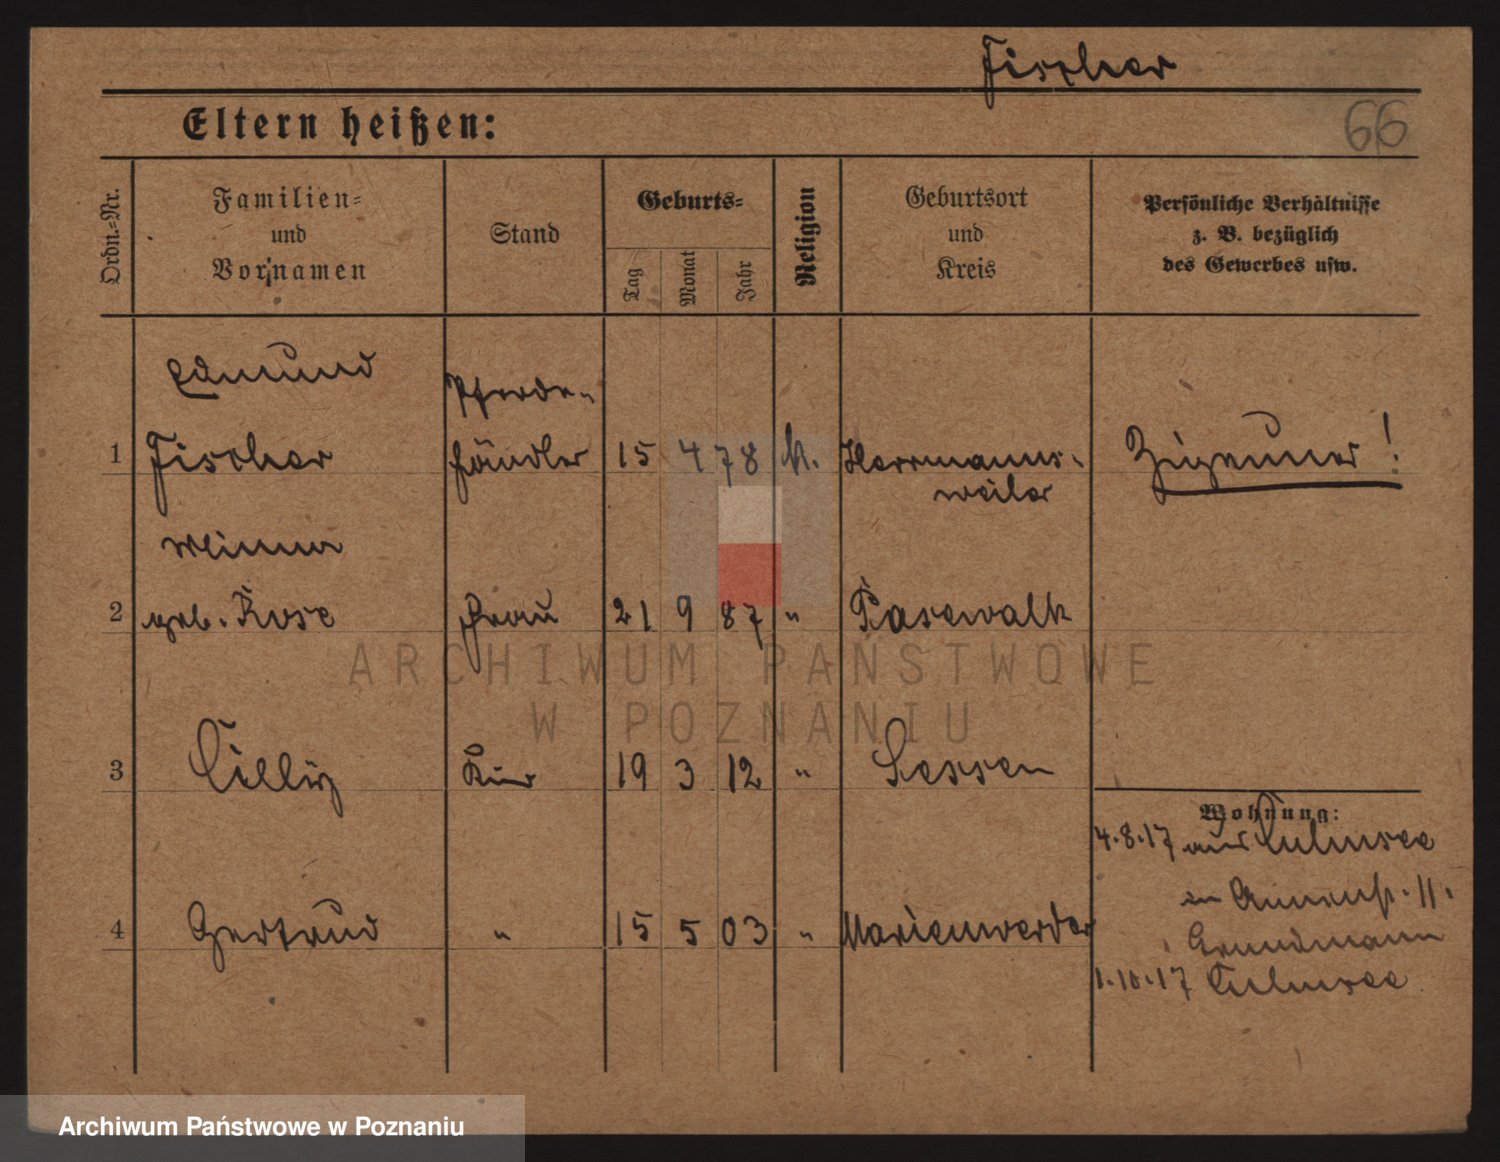 Fischer
66
Eltern heißen:
Ordn.-Nr.
Familien-
und
Vornamen
Stand
Geburts-
Tag
Monat
Jahr
Religion
Geburtsort
und
Kreis
Persönliche Verhältnisse
z. B. bezüglich
des Gewerbes usw.
Edmund
Pferde-
1 Fischer händler 15 4 78 k. Herrmanns-
weiler
Zigeuner!
Minna
2 geb. Rose Frau 21 9 87 " Pasewalk
ARCHIWUM PAŃSTWOWE
W POZNANIU
3 Cilly Kind 19 3 12 " Lessen
Wohnung:
4.8.17 aus Culmsee
in Annenstr. 11.
Grundmann
4 Gertrud " 15 5 03 " Marienwerder
1.10.17 Culmsee
Archiwum Państwowe w Poznaniu